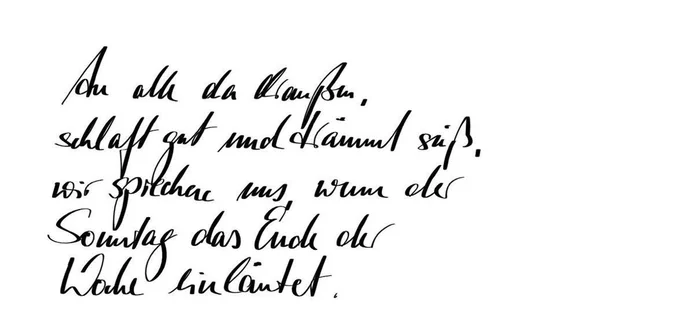 An alle da draußen,
schlaft gut und träumt süß,
wir sprechen uns, wenn der
Sonntag das Ende der
Woche einläutet.